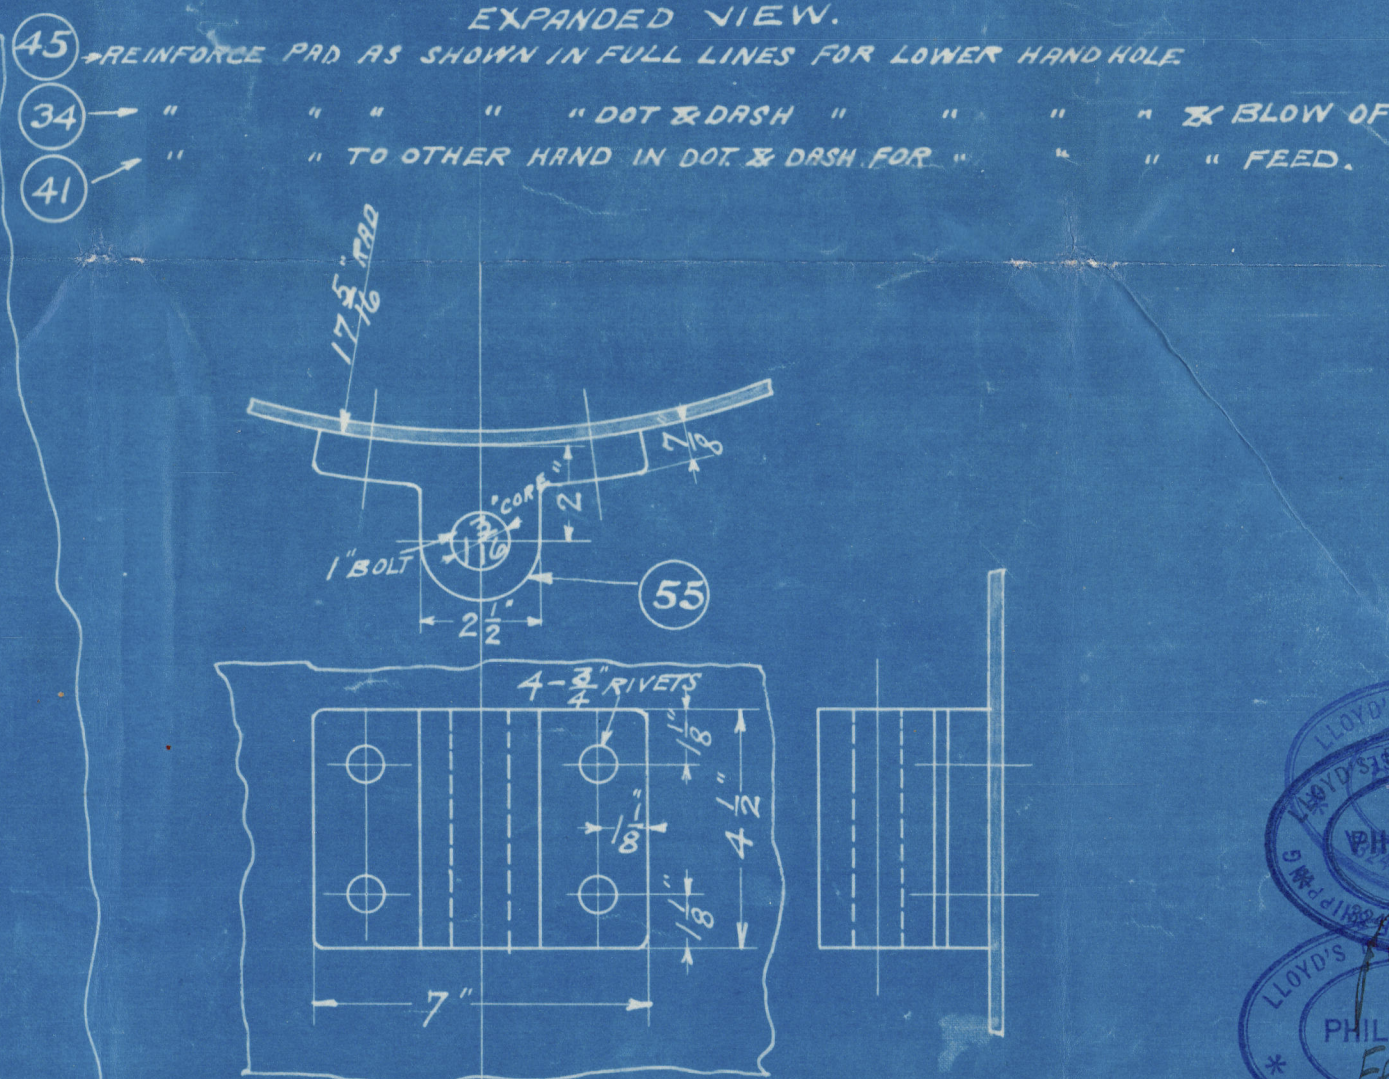 EXPANDED VIEW.
45 REINFORCE PAD AS SHOWN IN FULL LINES FOR LOWER HAND HOLE
34 " " " " " DOT & DASH " " " " & BLOW OF
41 " " TO OTHER HAND IN DOT & DASH FOR " " " " FEED.
17 5/16" RAD
7/8"
2"
1 3/16" CORE
1" BOLT
55
2 1/2"
4 - 3/4" RIVETS
1 1/8"
4 1/2"
1 1/8"
1 1/8"
7"
LLOYD'S
LLOYD'S
SHIPPING
PH
LLOYD'S
PHIL